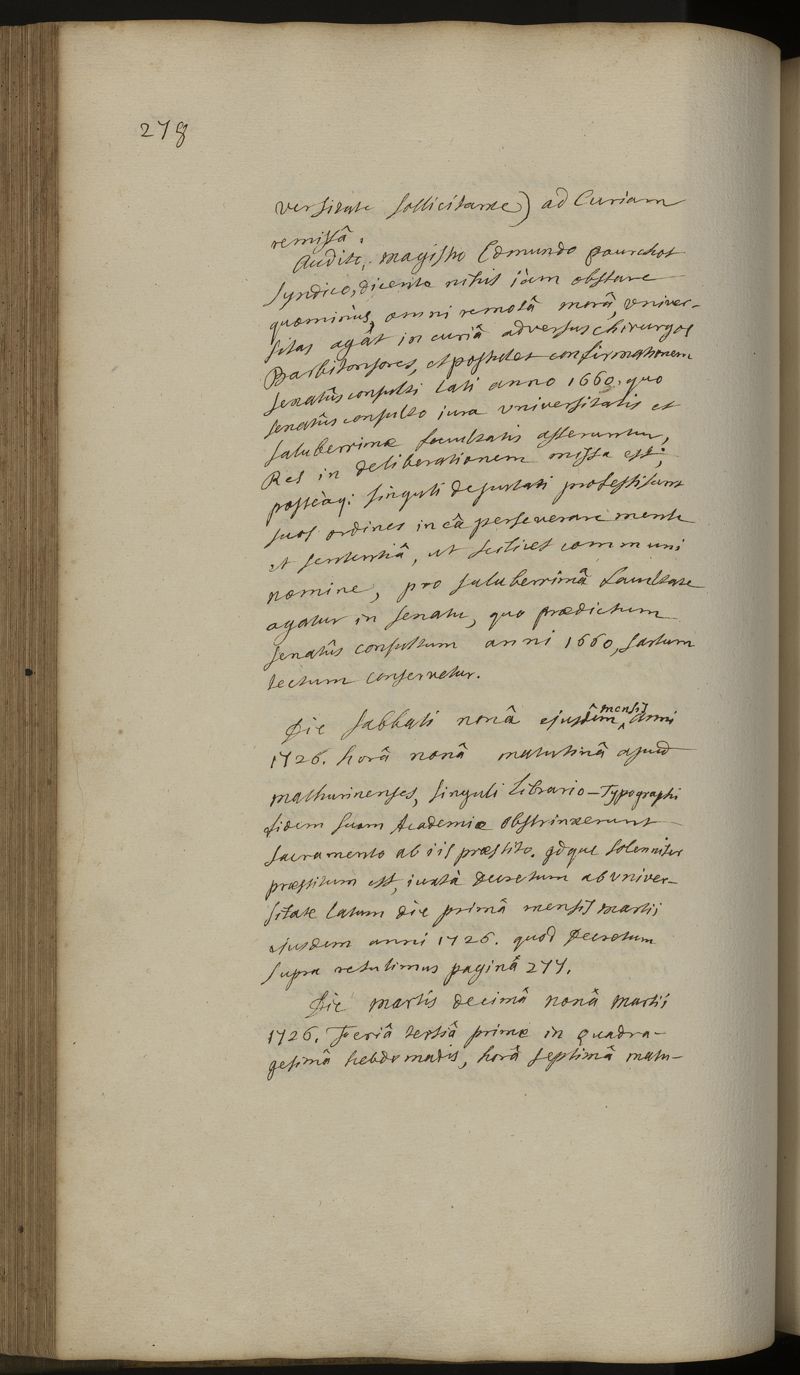 278
versitate sollicitante) ad Curiam
remissâ.
Audito, magistro Edmundo pourchot
Syndico, dicente nihil iàm obstare
quominùs, omni remotâ morâ, vniver-
sitas agat in curiâ adversus chirurgos
Barbitonsores, et postulet confirmationem
senatûsconsulti lati anno 1660. quo
senatûsconsulto iura vniversitatis et
saluberrimæ facultatis asseruntur,
Res in deliberationem missa est;
posteàq; singuli deputati professi sunt
suos ordines in eâ perseverare mente
et sententiâ, ut scilicet communi
nomine, pro saluberrimâ facultate
agatur in senatu, quo prædictum
senatûs consultum anni 1660, sartum
tectum conservetur.
Die sabbati nonâ ejusdem mensis anni
1726. horâ nonâ matutinâ apud
mathurinenses, singuli Librario-Typographi
fidem suam Academiæ obstrinxerunt
sacramento ab iis præstito. idque solenniter
præstitum est, iuxtà Decretum ab vniver-
sitate latum die primâ mensis martii
ejusdem anni 1726. quod Decretum
supra retulimus paginâ 277.
Die martis decimâ nonâ martii
1726. Feriâ tertiâ primæ in Quadra-
gesimâ hebdomadis, horâ septimâ matu-